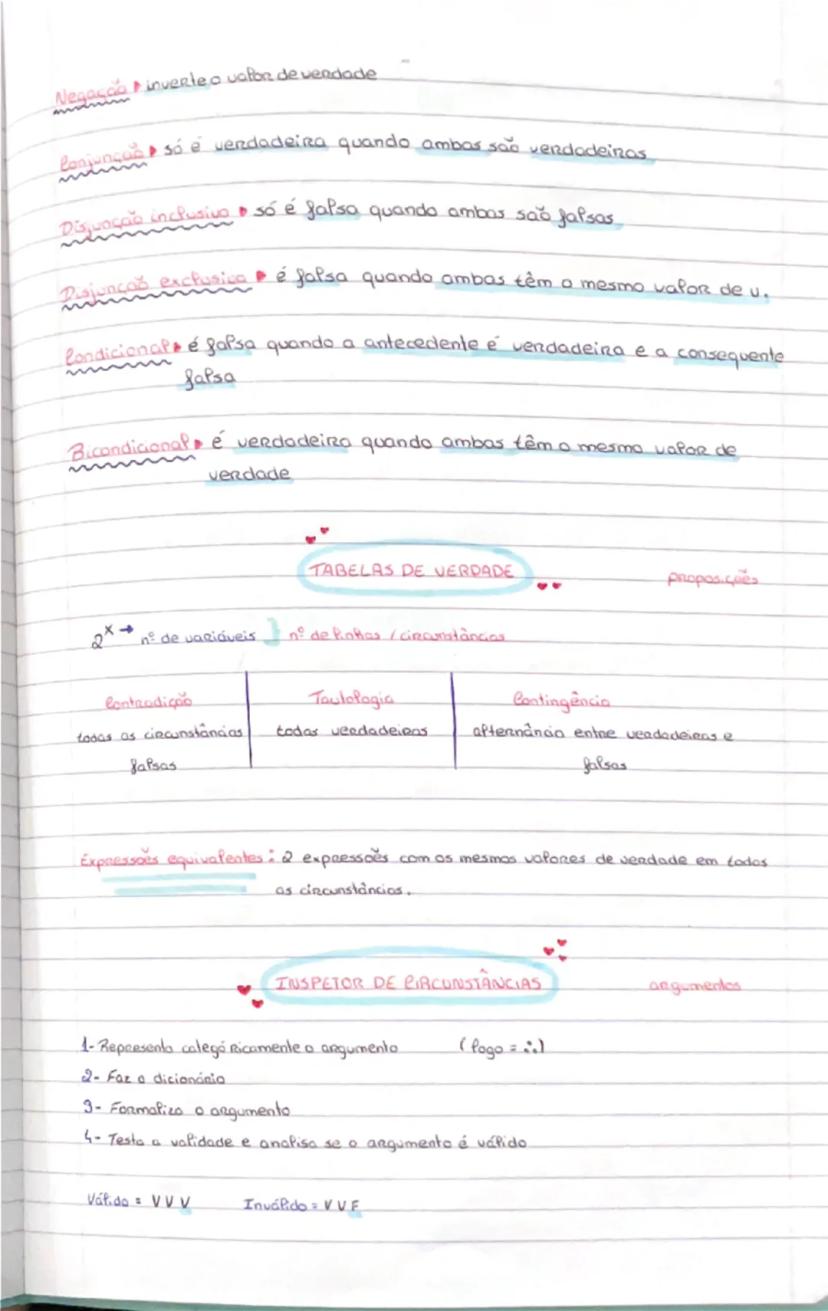 Negação ▸ inverte o valor de verdade
Conjunção ▸ só é verdadeira quando ambas são verdadeiras
Disjunção inclusiva ▸ só é falsa quando ambas são falsas
Disjunção exclusiva ▸ é falsa quando ambas têm o mesmo valor de v.
Condicional ▸ é falsa quando a antecedente é verdadeira e a consequente
falsa
Bicondicional ▸ é verdadeira quando ambas têm o mesmo valor de
verdade
TABELAS DE VERDADE proposições
2^x → nº de variáveis } nº de linhas / circunstâncias
Contradição Tautologia Contingência
todas as circunstâncias todas verdadeiras alternância entre verdadeiras e
falsas falsas
Expressões equivalentes: 2 expressões com os mesmos valores de verdade em todas
as circunstâncias.
INSPETOR DE CIRCUNSTÂNCIAS argumentos
1- Representa categóricamente o argumento (logo = ∴)
2- Faz o dicionário
3- Formaliza o argumento
4- Testa a validade e analisa se o argumento é válido
Válido = V V V Inválido = V V F